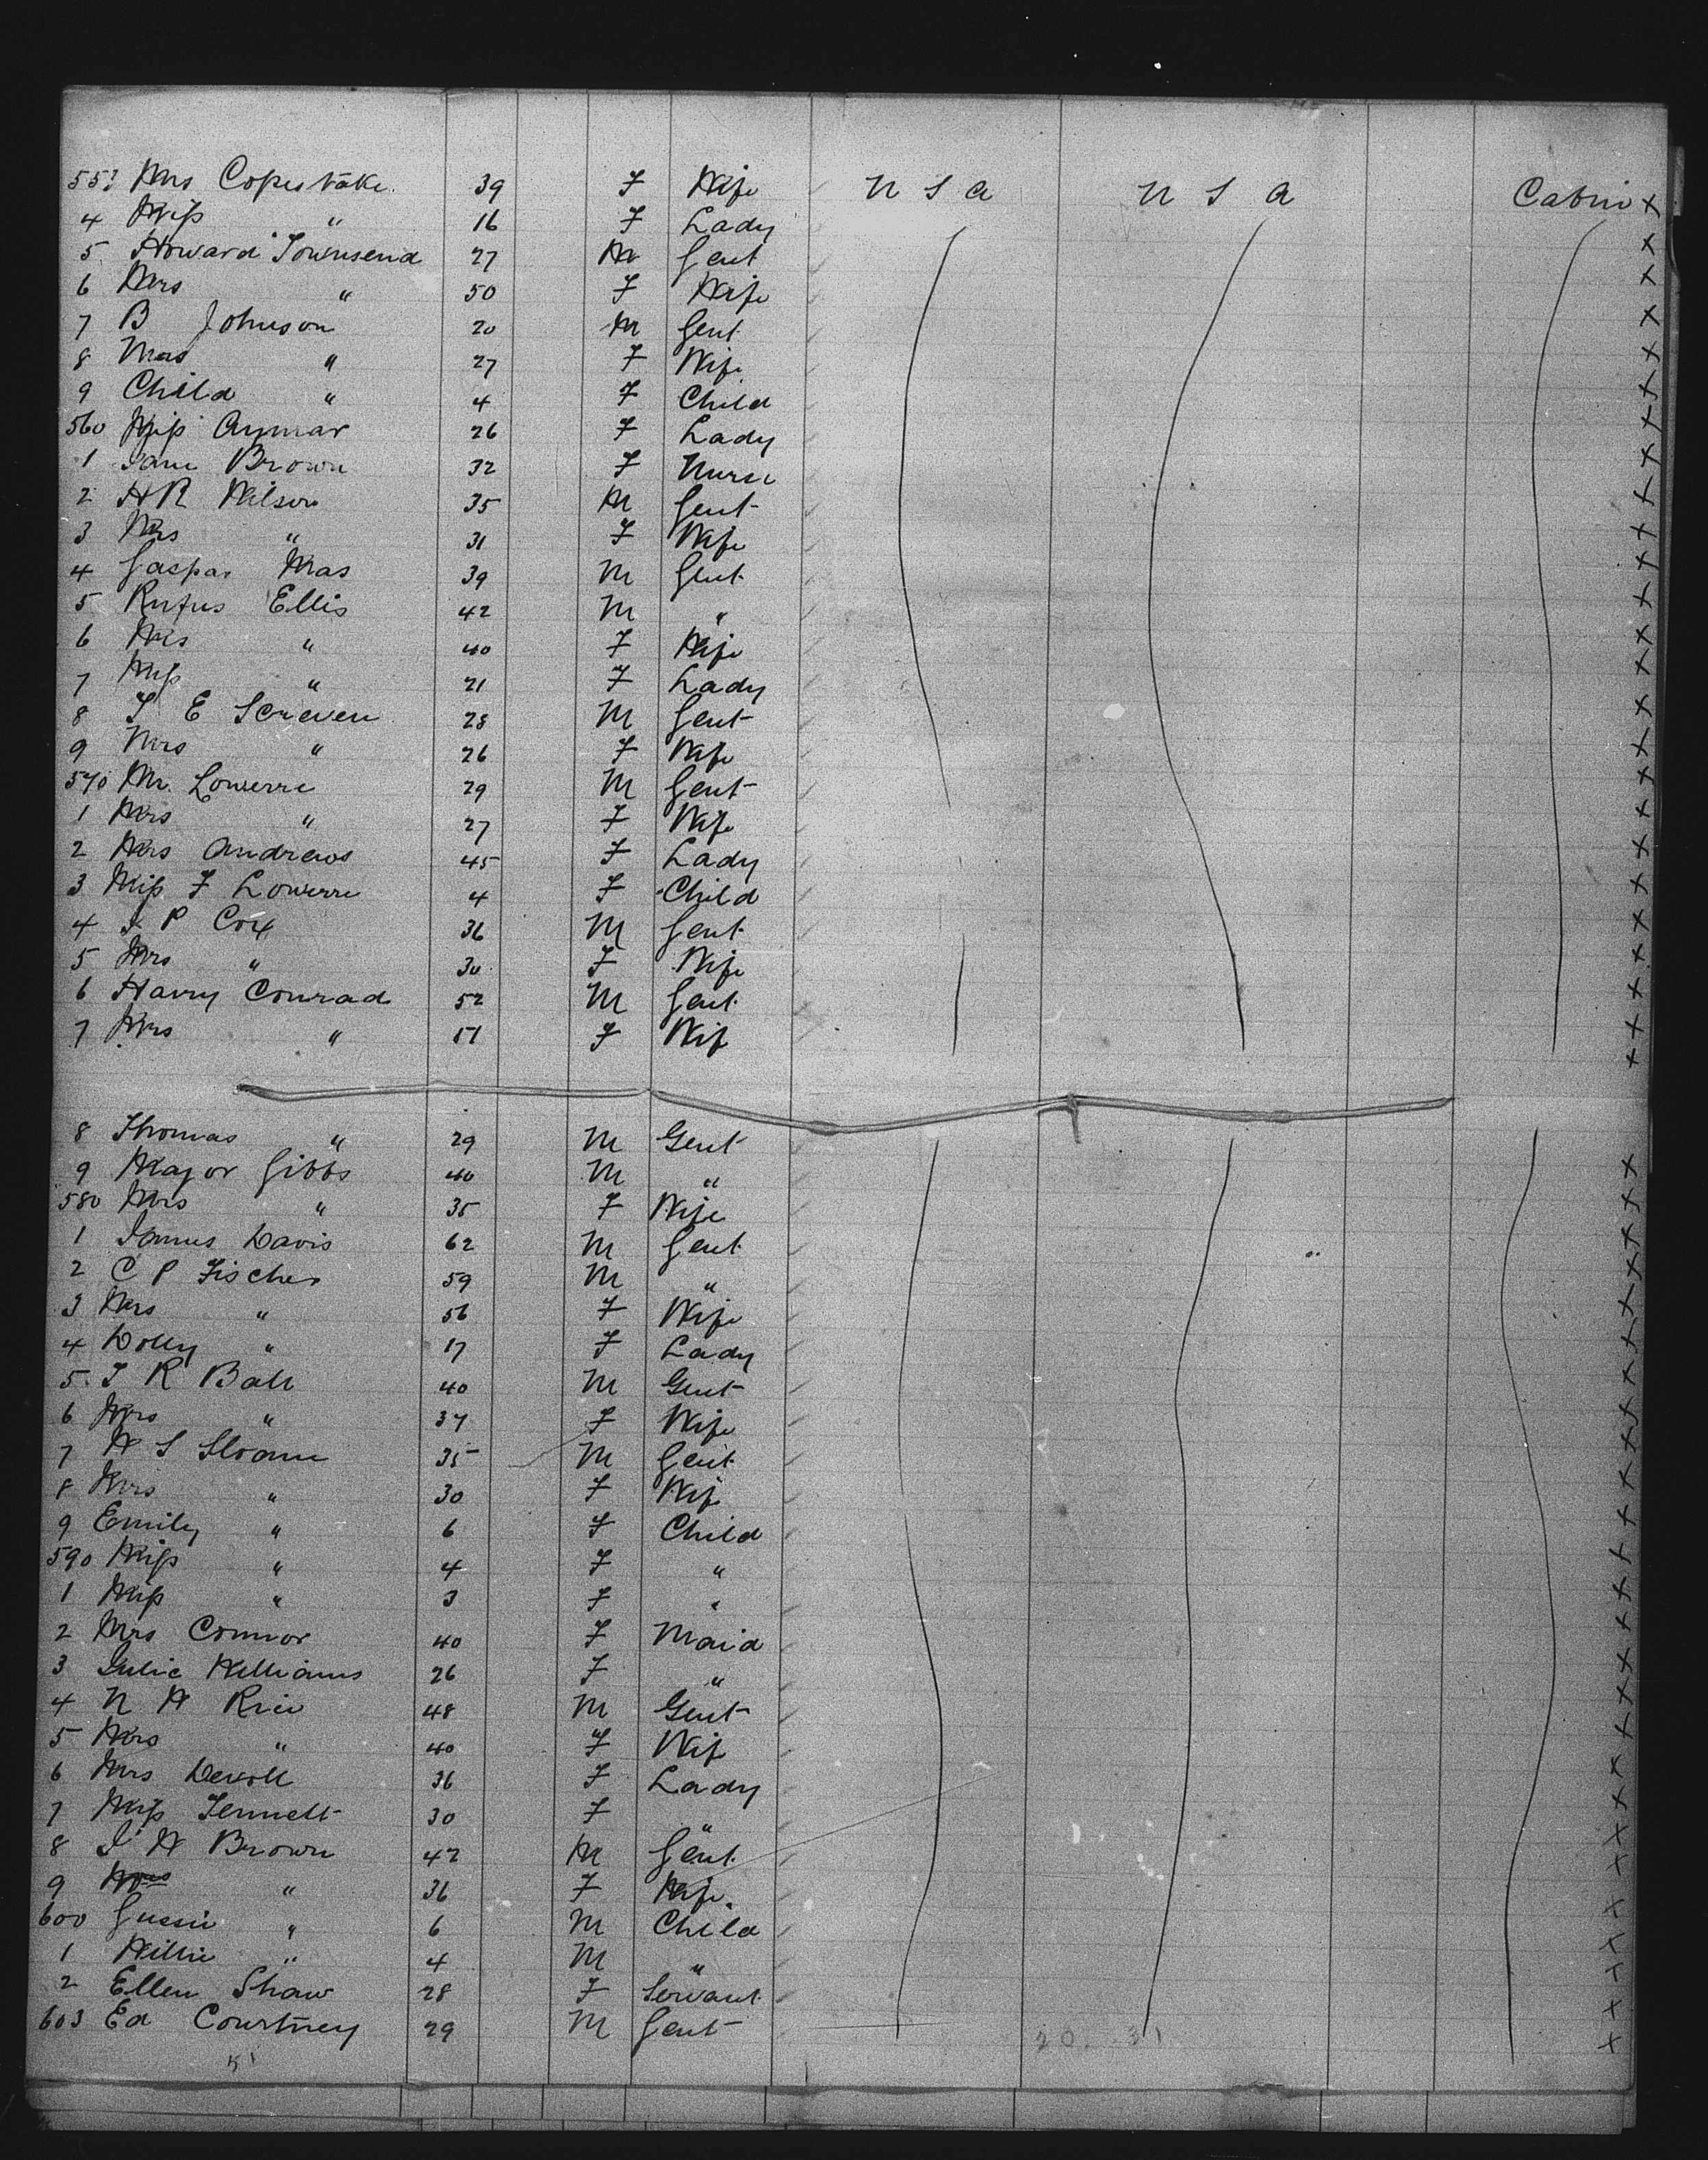 553 Mrs Copestake. 39 F Wife U S A U S A Cabin x
4 Miss " 16 F Lady x
5. Howard Townsend 27 M Gent x
6 Mrs " 50 F Wife x
7 B Johnson 20 M Gent x
8 Mrs " 27 F Wife x
9 Child " 4 F Child x
560 Miss Aymar 26 F Lady x
1 Jane Brown 32 F Nurse x
2 H R Wilson 35 M Gent x
3 Mrs " 31 F Wife x
4 Gaspar Mas 39 M Gent x
5 Rufus Ellis 42 M " x
6 Mrs " 40 F Wife x
7 Miss " 21 F Lady x
8 T E Screven 28 M Gent x
9 Mrs " 26 F Wife x
570 Mr. Lowerre 29 M Gent x
1 Mrs " 27 F Wife x
2 Mrs Andrews 45 F Lady x
3 Miss F Lowerre 4 F Child x
4 J P Cox 36 M Gent x
5 Mrs " 30 F Wife x
6 Harry Conrad 52 M Gent x
7 Mrs " 51 F Wife x
8 Thomas " 29 M Gent
9 Major Gibbs 40 M " x
580 Mrs " 35 F Wife x
1 James Davis 62 M Gent x
2 C P Fischer 59 M " x
3 Mrs " 56 F Wife x
4 Dolly " 17 F Lady x
5. T R Ball 40 M Gent x
6 Mrs " 37 F Wife x
7 W S Sloane 35 M Gent x
8 Mrs " 30 F Wife x
9 Emily " 6 F Child x
590 Miss " 4 F " x
1 Miss " 3 F " x
2 Mrs Connor 40 F Maid x
3 Julie Williams 26 F " x
4 N W Rice 48 M Gent x
5 Mrs " 40 F Wife x
6 Mrs Devoll 36 F Lady x
7 Miss Fennell 30 F " x
8 J W Brown 42 M Gent x
9 Mrs " 36 F Wife x
600 Gussie " 6 M Child x
1 Willie " 4 M " x
2 Ellen Shaw 28 F Servant x
603 Ed Courtney 29 M Gent x
51 20. 31